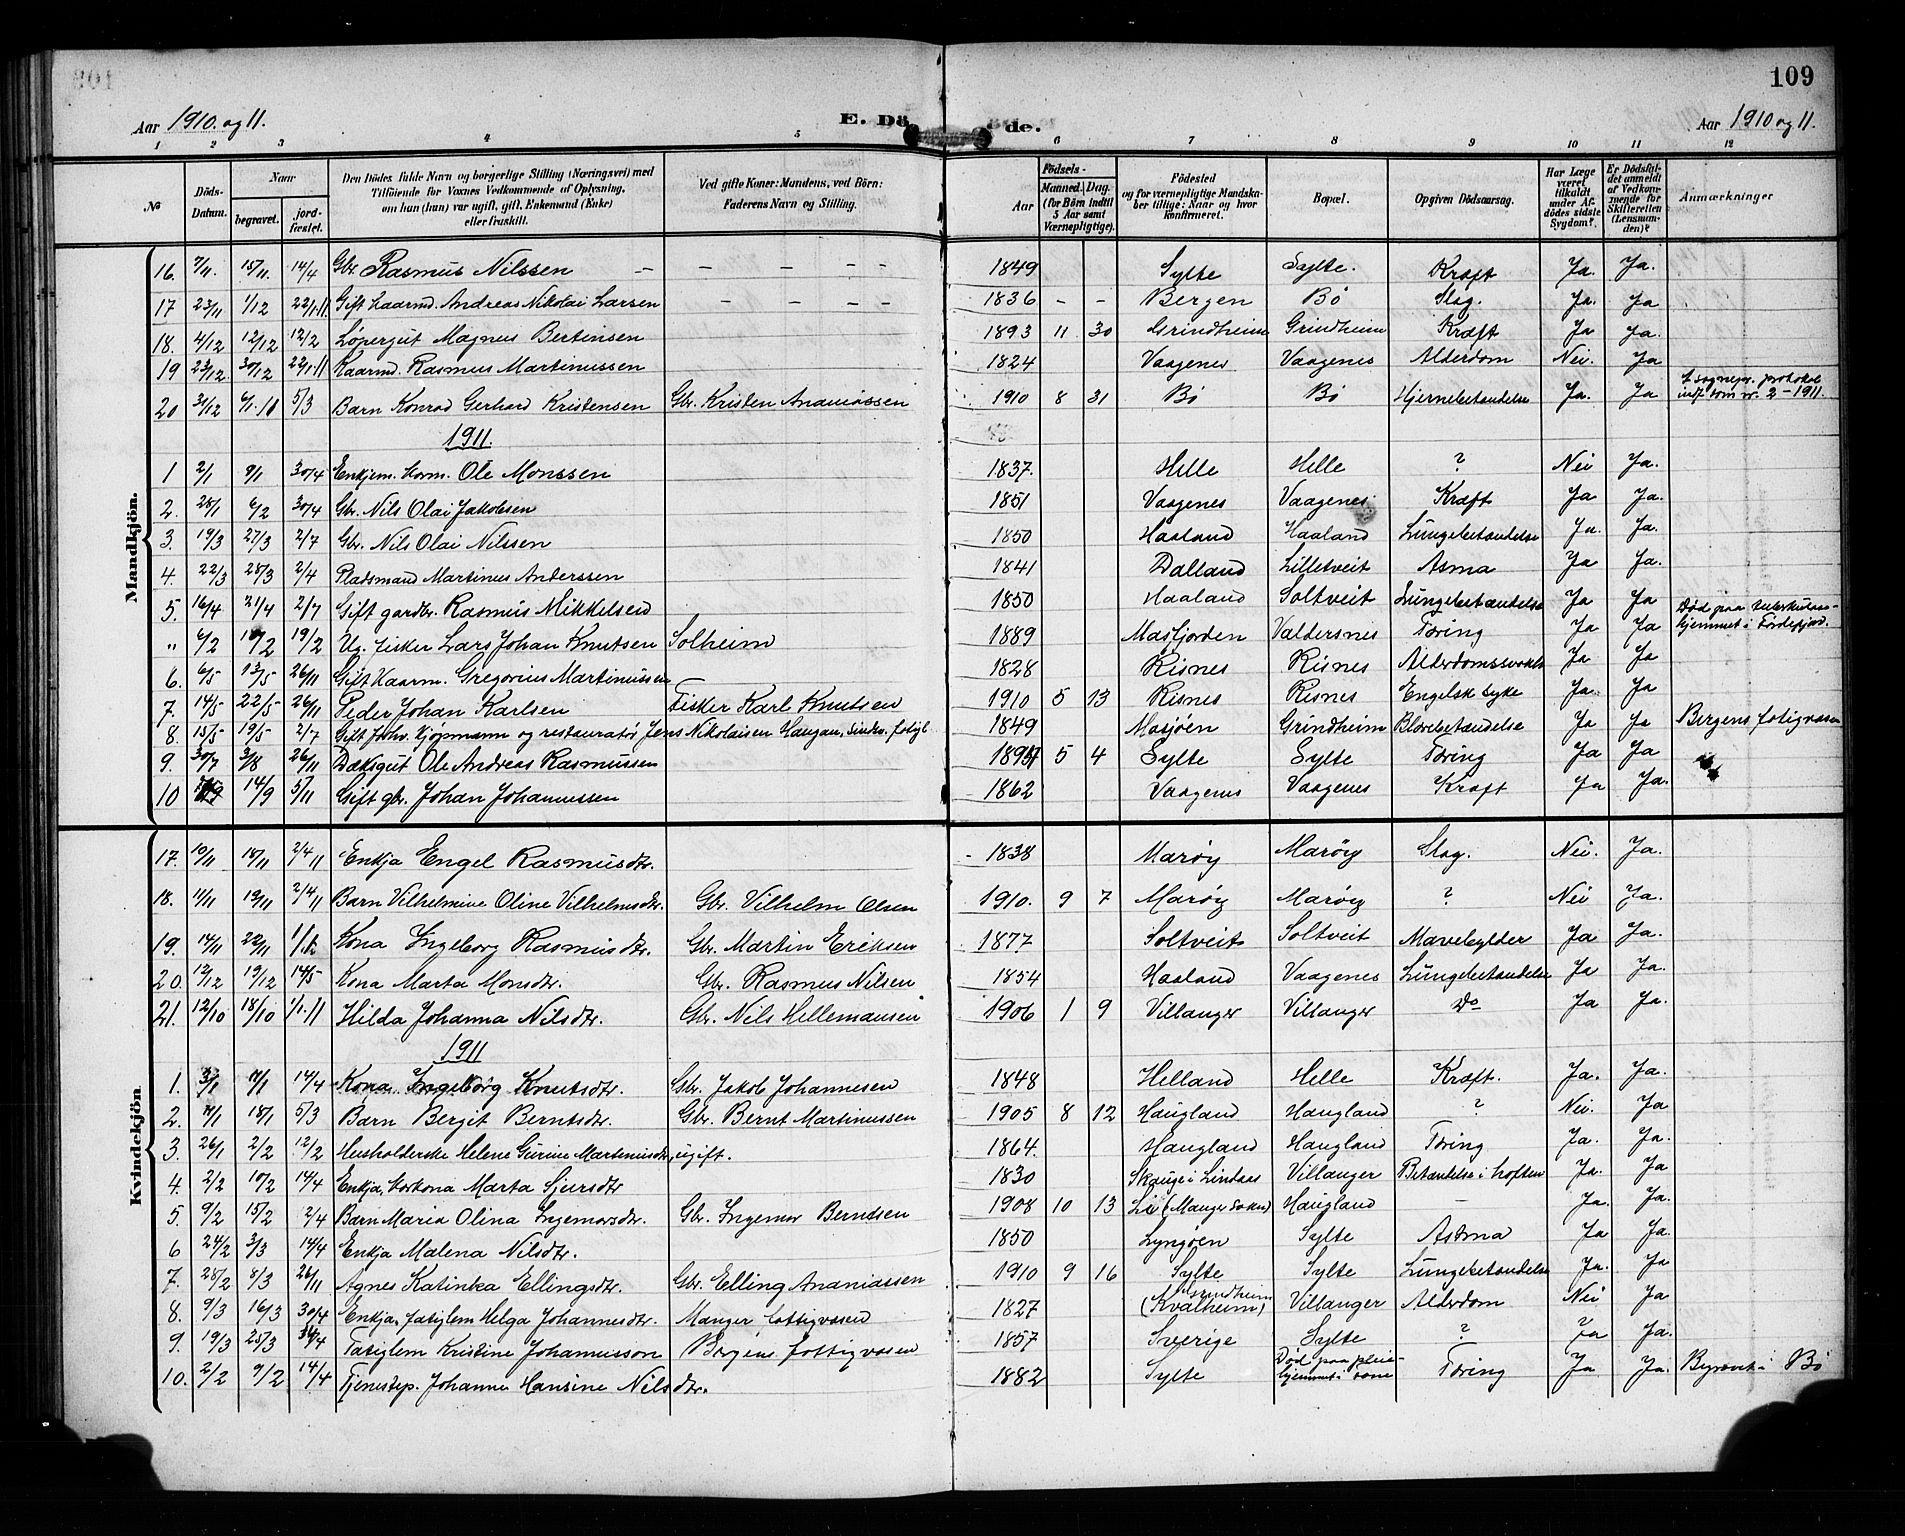 109
Aar 1910 og 11. E. Dö de. Aar 1910 og 11.
1 2 3 4 5 6 7 8 9 10 11 12
No Döds-Datum. Naar begravet. jordfæstet. Den Dödes fulde Navn og borgerlige Stilling (Næringsvei) med Tilföiende for Voxnes Vedkommende af Oplysning, om han (hun) var ugift, gift, Enkemand (Enke) eller fraskilt. Ved gifte Koner: Mandens, ved Börn: Faderens Navn og Stilling. Födsels- Aar Maaned. Dag. (for Börn indtil 5 Aar samt Værnepligtige). Födested og for værnepligtige Mandskaber tillige: Naar og hvor konfirmeret. Bopæl. Opgiven Dödsaarsag. Har Læge været tilkaldt under Afdödes sidste Sygdom? Er Dödsfaldet anmeldt af Vedkommende for Skifteretten (Lensmanden)? Anmærkninger
Mandkjön.
16. 7/11 15/11 14/4 Gbr. Rasmus Nilssen – – – – – 1849 Sylte Sylte. Kræft Ja. Ja.
17 23/11 1/12 22/1.11 Gift kaarmd. Andreas Nikolai Larsen – – – – – 1836 – – Bergen Bö Slag. Ja. Ja
18. 4/12 12/12 12/2 Löpergut Magnus Bertinsen 1893 11 30 Grindheim Grindheim Kræft Ja Ja.
19 23/12. 30/12 22/1.11 Kaarmd. Rasmus Martinussen 1824 Vaagenes Vaagenes Alderdom Nei. Ja
20 31/12 5/3 Barn Konrad Gerhard Kristensen Gbr. Kristen Ananiassen 1910 8 31 Bö Bö Hjernebetændelse Ja. Ja I sognepr. protokol indf. som nr. 2–1911.
1911.
1 2/1 9/1 30/4 Enkjem. Ole Monssen 1837. Helle Helle ? Nei Ja.
2. 28/1 6/2 30/4 Gbr. Nils Olai Jakobsen 1851 Vaagenes Vaagenes Kræft Ja Ja.
3. 19/3 27/3 2/7 Gbr. Nils Olai Nilssen 1850 Haaland Haaland Lungebetændelse Ja. Ja.
4. 22/3 28/3 2/4 Pladsmand Martinus Anderssen 1841 Dalland Lilletveit Asma Ja Ja.
5. 16/4 21/4 2/7 Gift gardbr. Rasmus Mikkelsen 1850 Haaland Soltveit Lungebetændelse Ja Ja
" 6/2 19/2 Ug. fisker Lars Johan Knutsen Solheim 1889 Masfjorden Valdersnes Tæring Ja Ja Död paa tuberkulosehjemmet i Fördefjord.
6. 6/5 13/5 26/11 Gift Kaarm. Gregorius Martinussen 1828 Risnes Risnes Alderdomssvækk. Ja Ja
7. 14/5 22/5 26/11 Peder Johan Karlsen Fisker Karl Knutsen 1910 5 13 Risnes Risnes Engelsk syke Ja. Ja
8. 15/5 19/5 2/7 Gift kjöpmann og restauratör Jens Nikolaisen Haugan, fatigl 1849 Mosjöen Grindheim Blærebetændelse Ja Ja Bergens fatigvæsen
9. 30/7 3/8 26/11 Dæksgut Ole Andreas Rasmussen 5 4 Sylte Sylte Tæring Ja Ja
10 14/9 5/11 Gift gbr. Johan Johannessen 1862 Vaagenes Vaagenes Kræft Ja Ja.
Kvindekjön
17. 10/11 18/11 2/4 11 Enkja Engel Rasmusdtr. 1838 Maröy Maröy Slag. Nei. Ja.
18. 11/11 19/11 2/4 11 Barn Vilhelmine Oline Vilhelmsdtr. Gbr. Vilhelm Olsen 1910. 9 7 Maröy Maröy ? Nei Ja.
19. 14/11 22/11 Kona Ingeborg Rasmusdtr. Gbr. Martin Eriksen 1877 Soltveit Soltveit Mavebylder Ja Ja.
20. 12/12 19/12 14/5 Kona Marta Monsdtr. Gbr. Rasmus Nilsen 1854 Haaland Vaagenes Lungebetændelse Ja Ja.
21. 12/10 18/10 1/1.11 Hilda Johanna Nilsdtr. Gbr. Nils Hellemansen 1906 1 9 Villanger Villanger Do Ja Ja.
1911
1. 3/1 14/4 Kona Ingeborg Knutsdtr. Gbr. Jakob Johannesen 1848 Helland Helle Kræft. Ja. Ja.
2. 18/1 5/3 Barn Bergit Berntsdtr. Gbr. Bernt Martinussen 1905 8 12 Haugland Haugland ? Nei. Ja
3. 26/1 2/2 12/2 Husholderske Helene Gurine Martinusdtr, ugift. 1864. Haugland Haugland Tæring Ja. Ja.
4. 2/2 10/2 14/4 Enkja, Marta Sjursdtr 1830 Skauge i Lindaas Villanger Betændelse i hoften Ja. Ja
5. 9/2 15/2 2/4 Barn Maria Olina Ingemorsdtr. Gbr. Ingemor Berndsen 1908 10 13 Li (Manger sokn) Haugland – Ja. Ja.
6 24/2 3/3 14/4 Enkja Malena Nilsdtr. 1850 Lyngöen Sylte Astma Ja Ja.
7. 28/2 8/3 26/11 Agnes Katinka Ellingsdtr. Gbr. Elling Ananiassen 1910 9 16 Sylte Sylte Lungebetændelse Ja. Ja
8. 9/3 16/3 30/4 Enkja, fatiglem Helga Johannesdtr. Manger fattigvæsen 1827 (Kvalheim) Villanger Alderdom Nei Ja
9. 19/3 25/3 Fatiglem Kristine Johannesson Bergens fattigvæsen 1857 Sverige Sylte ? Ja Ja.
10. 2/2 9/2 14/4 Tjenestep. Johanne Hansine Nilsdtr. 1882 Sylte Död paa pleiehjemmet i Tæring Ja Ja. Bö